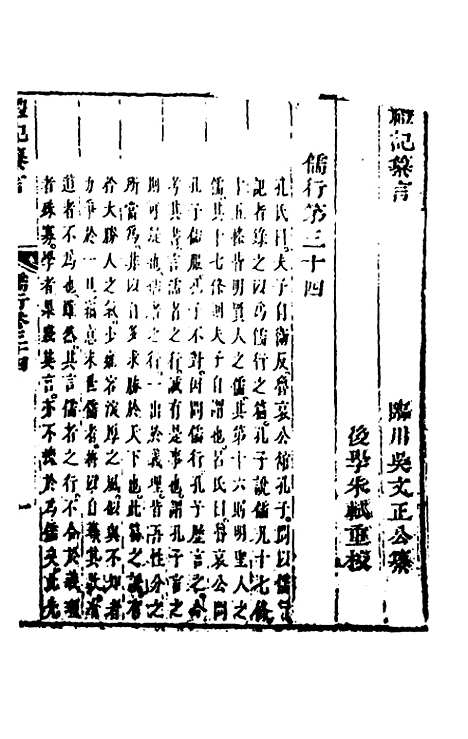 禮記纂言
臨川吳文正公纂
後學朱軾重校
儒行第三十四
孔氏曰夫子自衛反魯哀公館孔子問以儒行
記者錄之以爲儒行之篇孔子說儒凡十七條
十五條皆明賢人之儒其第十六明聖人之
儒其十七條則夫子自謂也呂氏曰魯哀公問
孔子儒服孔子不對因問儒行孔子歷言之今
考其書言儒者之行誠有是事也謂孔子言之
則可疑也儒者之行一出於義理皆吾性分之
所當爲非以自多求勝於天下也此篇之說有
矜大勝人之氣少雍容深厚之風似與不知者
力爭於一旦竊意末世儒者將以自尊其教有
道者不爲也雖然其言儒者之行不合於義理
者殊寡學者果踐其言亦不愧於爲儒矣此先
禮記纂言
儒行卷三十四
一